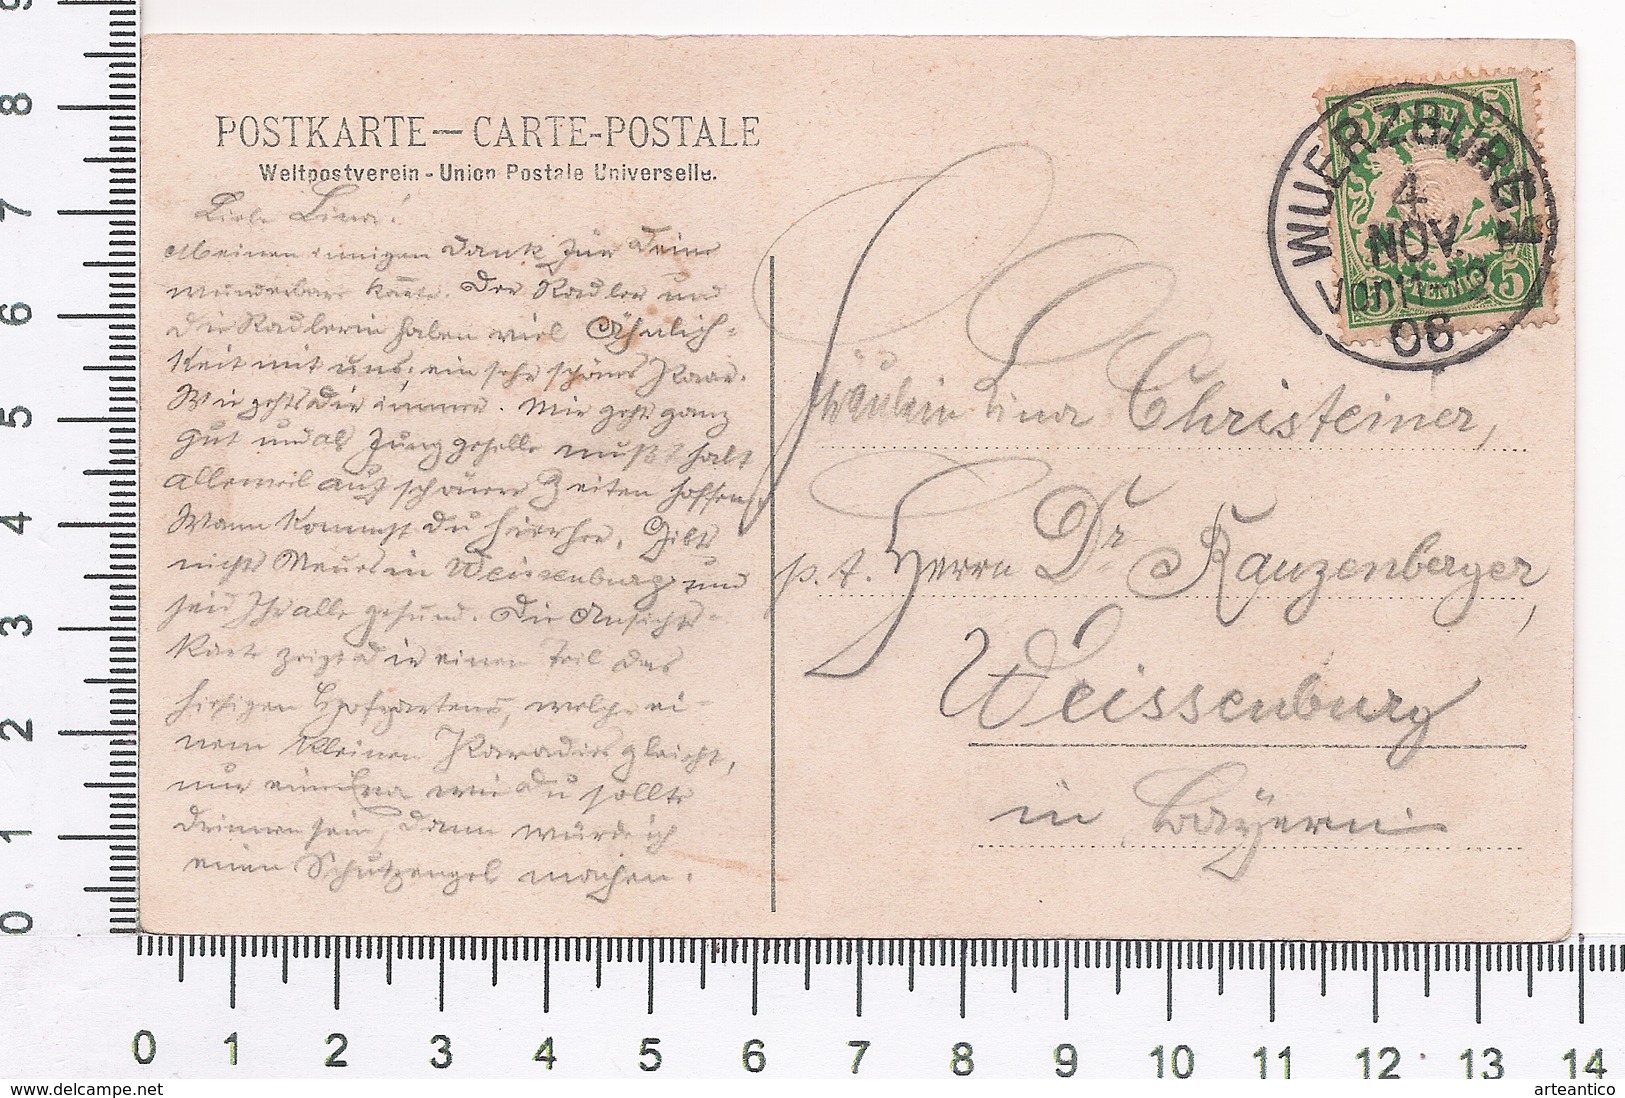 POSTKARTE — CARTE-POSTALE
Weltpostverein - Union Postale Universelle.
Liebe Lina!
Meinen innigen Dank für Deine
wunderbare Karte. Der Radler und
die Radlerin haben viel Ähnlich-
keit mit uns, ein sehr schönes Paar.
Wie gehts Dir immer. Mir gehts ganz
gut und als Junggeselle muß halt
alleweil auf schönere Zeiten hoffen.
Wann kommst Du hierher. Gibts
nichts Neues in Weissenburg und
seid Ihr alle gesund. Die Ansichts-
karte zeigt Dir einen Teil des
hiesigen Hofgartens, welcher ei-
nem kleinen Paradies gleicht,
nur eine Eva wie Du sollte
drinnen sein, dann würde ich
einen Schutzengel machen.
BAYERN
5
PFENNIG
WUERZBURG 1
4
NOV.
Vorm 11-12
06
Fräulein Lina Christeiner,
p. A. Herrn Dr Kanzenberger,
Weissenburg
in Bayern
0 1 2 3 4 5 6 7 8 9
0 1 2 3 4 5 6 7 8 9 10 11 12 13 14
delcampe.net
arteantico